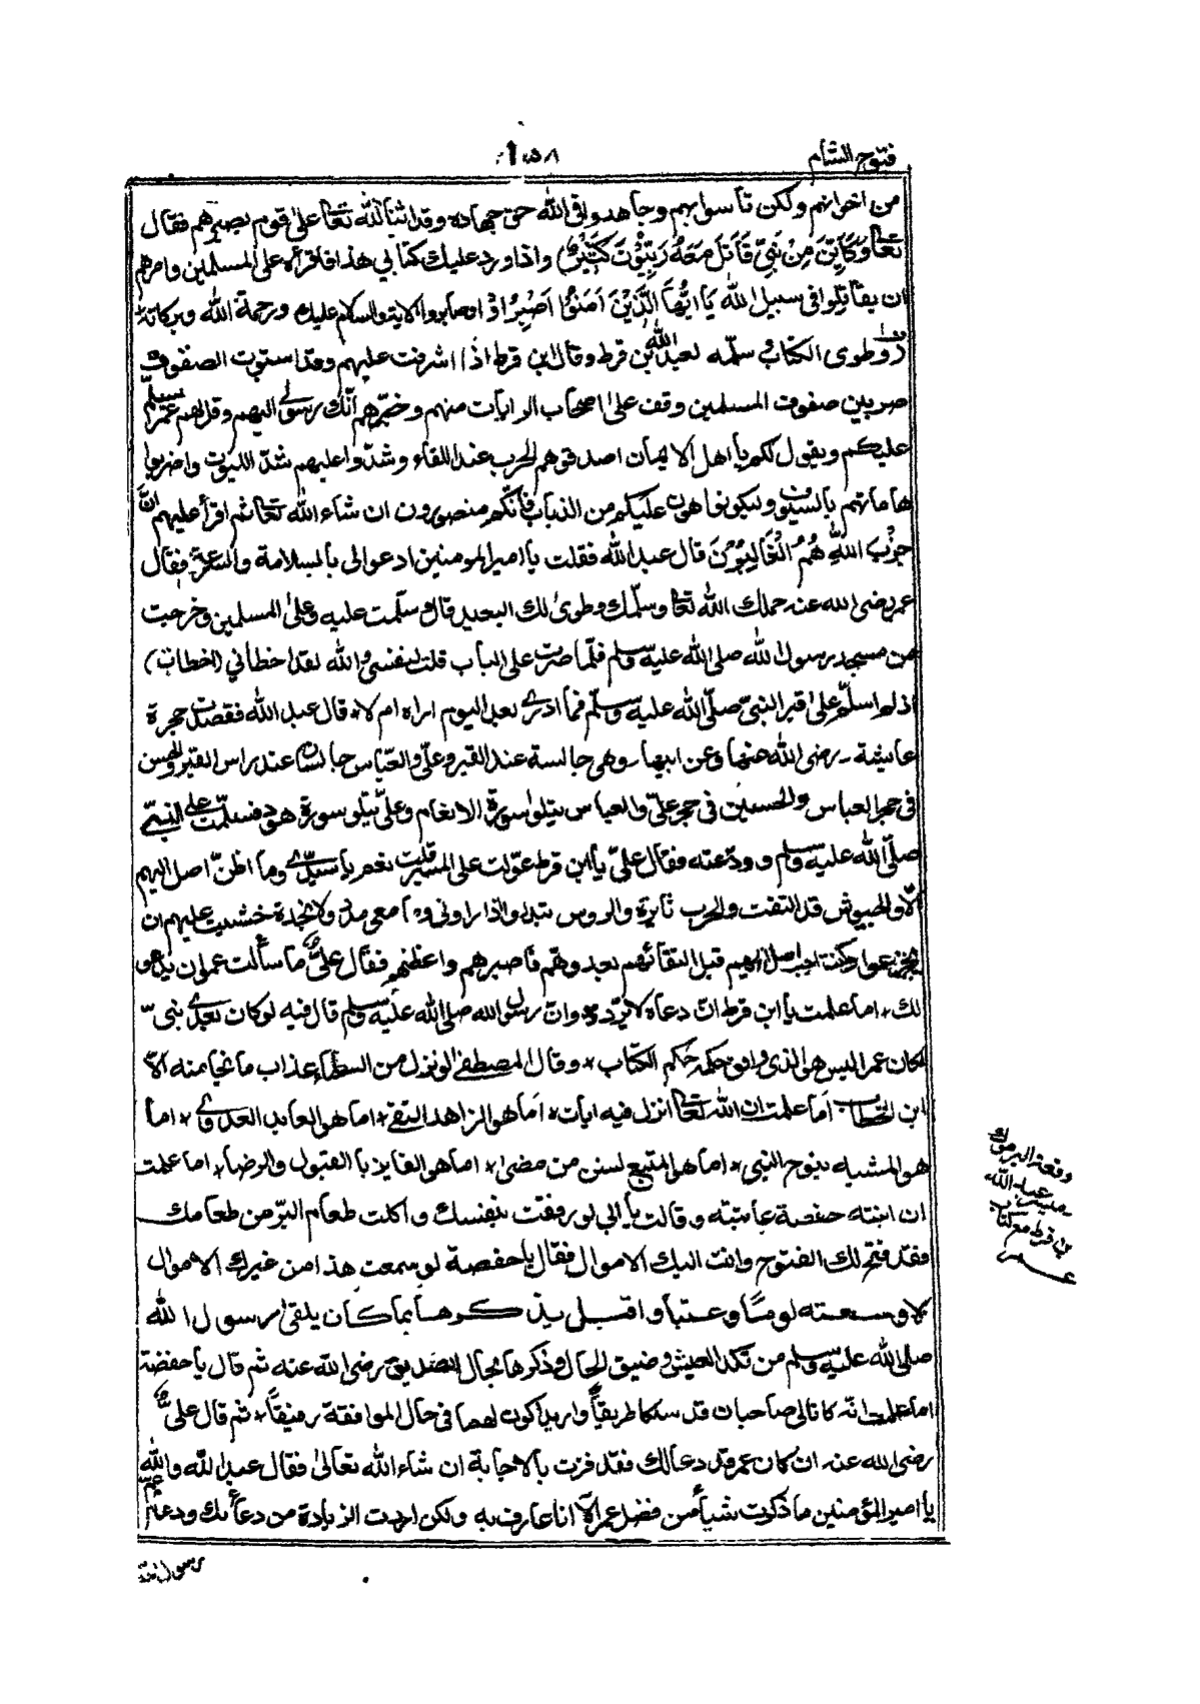 فتوح الشام
١٥٨
من اخوانهم ولكن تأسوا بهم وجاهدوا فى الله حق جهاده وقد اثنا لله تعا على قوم بصبرهم فقال
تعا وَكَأَيِّنَ مِنْ نَبِىٍّ قَاتَلَ مَعَهُ رَبِّيُّوْنَ كَثِيْرٌ) واذا ورد عليك كتابي هذا فاقرأه على المسلمين وامرهم
ان يقاتلوا فى سبيل الله يَا اَيُّهَا الَّذِيْنَ اَمَنُوْا اصْبِرُوْا وصابروا الاية والسلام عليك ورحمة الله وبركاته
وطوى الكتاب و سلّمه لعبد الله بن قرط وقال ابن قرط اذا اشرفت عليهم وقد استوت الصفوف
صر بين صفوف المسلمين وقف على اصحاب الرايات منهم وخبّرهم أنّك رسولى اليهم وقل لهم عمر يسلم
عليكم ويقول لكم يأ اهل الايمان اصدقوهم الحرب عند اللقاء وشدّوا عليهم شدّ الليوث واضربوا
هاماتهم بالسيوف وليكونوا هون عليكم من الذباب فأنّكم منصورون ان شاء الله تعا ثم اقرأ عليهم اَلَا اِنَّ
حِزْبَ اللّٰهِ هُمُ الْغَالِبُوْنَ قال عبد الله فقلت يأ امير المومنين ادعوالى بالسلامة والسرعة فقال
عمر رضى الله عنه حملك الله تعا وسلّمك وطوى لك البعيد قال وسلّمت عليه وعلى المسلمين وخرجت
من مسجد رسول الله صلى الله عليه وسلم فلمّا صرت على الباب قلت لنفسى والله لقد اخطانى (الخطاب)
اذ لم اسلّم على قبر النبىّ صلّى الله عليه وسلّم فما ادرى بعد اليوم اراه ام لا، قال عبد الله فقصدت حجرة
عايشة رضى الله عنها وعن ابيها وهى جالسة عند القبر وعلى والعبّاس جالسان عند راس القبر والحسن
فى حجر العباس والحسين فى حجر علىّ والعباس يتلو سورة الانعام وعلىّ يتلو سورة هود فسلّمت على النبىّ
صلّى الله عليه وسلم وودّعته فقال علىّ يا ابن قرط عوّلت على المسير قلت نعم يا سيّدى وما اظنّ اصل اليهم
الّا والجيوش قد التقت والحرب ثايرة والروس تبدر واذا راونى وما معى مدد ولا نجدة خشيت عليهم ان
يجزعوا وكنت احب اصل اليهم قبل التقائهم بعدوهم فاصبرهم واعظهم فقال علىٌّ ما سألت عمر ان يدعو
لك اما علمت يا ابن قرط انّ دعاه لا تردّ وان رسول الله صلى الله عليه وسلم قال فيه لو كان بعدى نبىّ
لكان عمر اليس هو الذى وافق حكمه حكم الكتاب وقال المصطفى لو نزل من السماء عذاب ما نجا منه الّا
ابن الخطاب اما علمت ان الله تعا انزل فيه ايات اما هو الزاهد التقى اما هو العابد العدوى اما
هو المشبه بنوح النبى اما هو المتبع لسنن من مضى اما هو الفايز بالقبول والرضا اما علمت
ان ابنته حفصة عاتبته وقالت يا ابى لو رفقت بنفسك واكلت طعام البرّ من طعامك
فقد فتح لك الفتوح وانت اليك الاموال فقال يا حفصة لو سمعت هذا من غيرك الاموال
لاوسعته لومًا وعتبا واقبل يذكرها بما كان يلقى رسول الله
صلى الله عليه وسلم من نكد العيش وضيق الحال وذكرها بحال الصديق رضى الله عنه ثم قال يا حفصة
اما علمت انّه كانا لى صاحبان قد سلكا طريقاً واريد اكون لهما فى حال الموافقة رفيقاً ثم قال علىّ
رضى الله عنه ان كان عمر قد دعا لك فقد فزت بالاجابة ان شاء الله تعالى فقال عبد الله والله
يا امير المؤمنين ما ذكرت شيأ من فضل عمر الّا انا عارف به ولكن اردت الزيادة من دعائك ودعاء عمّ
رسول الله
وقعة اليرموك
مسير عبد الله
بن قرط بكتاب
عمر